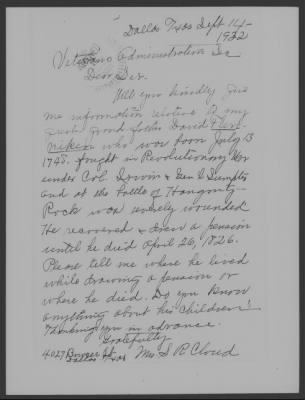 Dallas Texas Sept 14-
1932
Veterans Administration
Dear Sir.
Will you kindly give
me information relative to my
great grand father David Flen-
niken who was born July 13
1748. fought in Revolutionary War
under Col. Irwin & Gen'l Sumpter
and at the battle of Hanging-
Rock was severely wounded
He recovered & drew a pension
until he died April 26, 1826.
Please tell me where he lived
while drawing a pension or
where he died. Do you know
anything about his children?
Thanking you in advance.
Gratefully
4027 St.
Dallas Texas Mrs S R Cloud